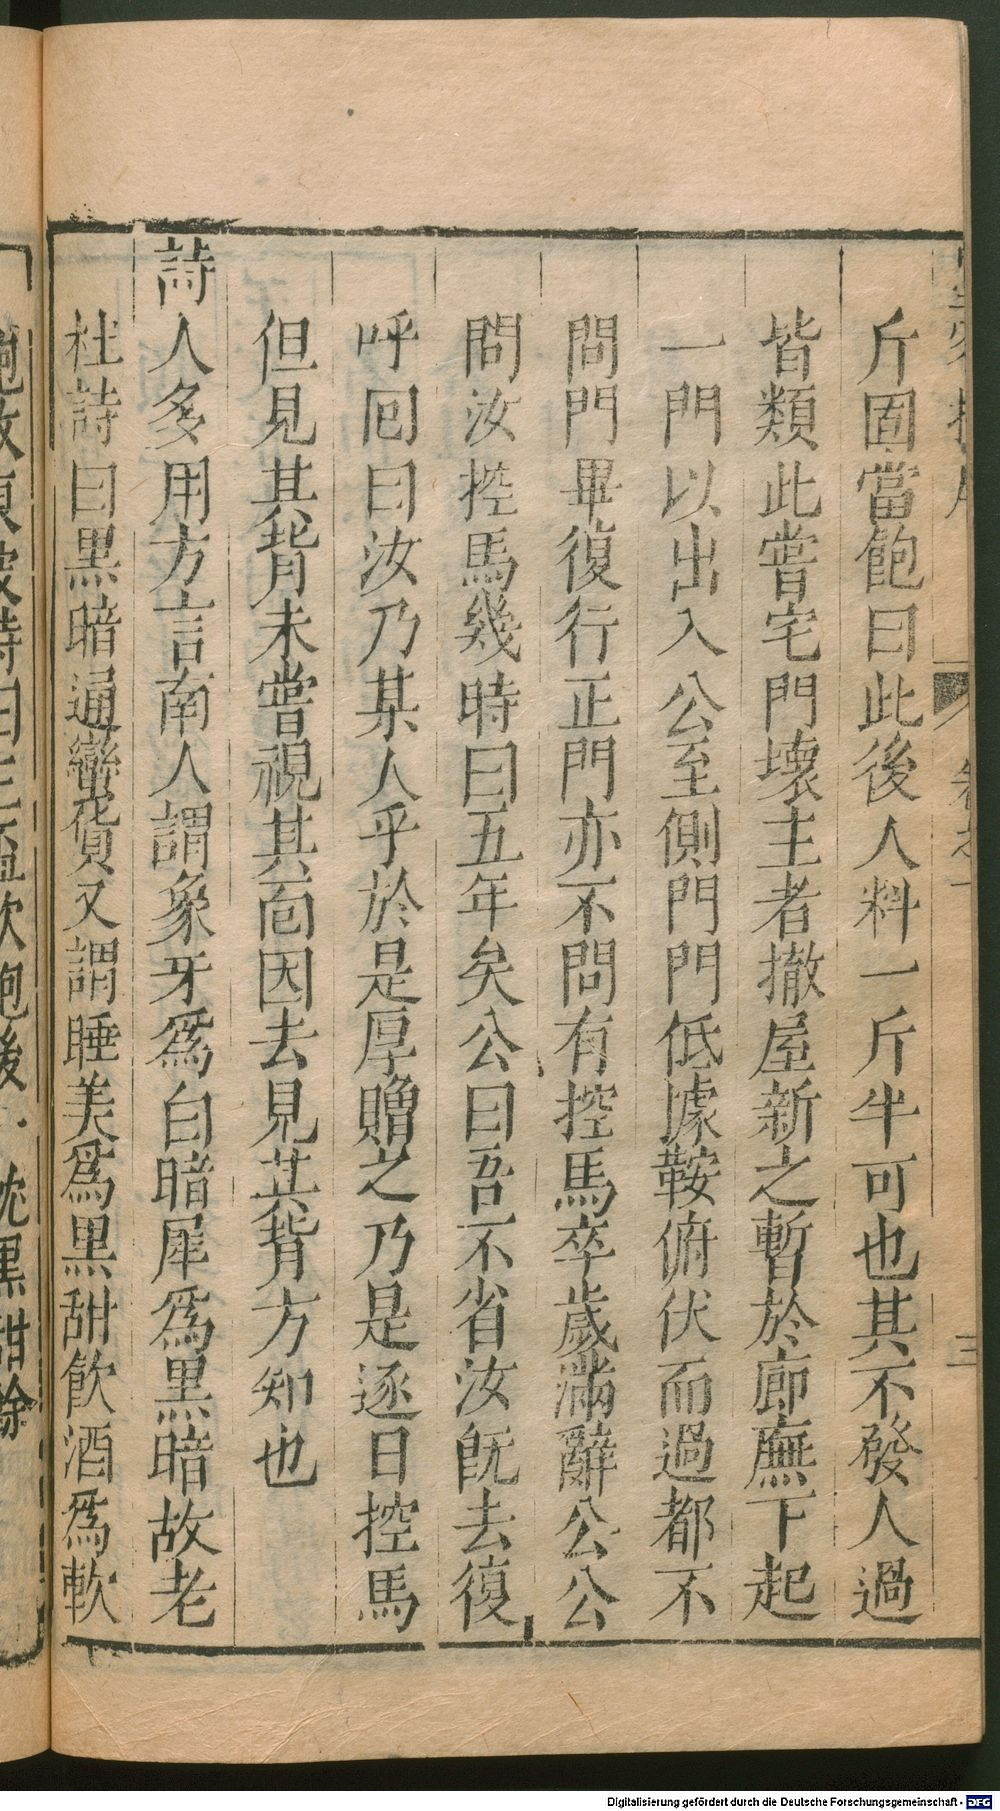 斤固當飽曰此後人料一斤半可也其不發人過
皆類此嘗宅門壞主者撤屋新之暫於廊廡下起
一門以出入公至側門門低據鞍俯伏而過都不
問門畢復行正門亦不問有控馬卒歲滿辭公公
問汝控馬幾時曰五年矣公曰吾不省汝旣去復
呼囘曰汝乃某人乎於是厚贈之乃是逐日控馬
但見其背未嘗視其面因去見其背方知也
詩人多用方言南人謂象牙爲白暗犀爲黑暗故老
杜詩曰黑暗通蠻貨又謂睡美爲黑甜飲酒爲軟
飽故東坡詩曰三盃軟飽後一枕黑甜餘
卷之一
三
Digitalisierung gefördert durch die Deutsche Forschungsgemeinschaft - DFG